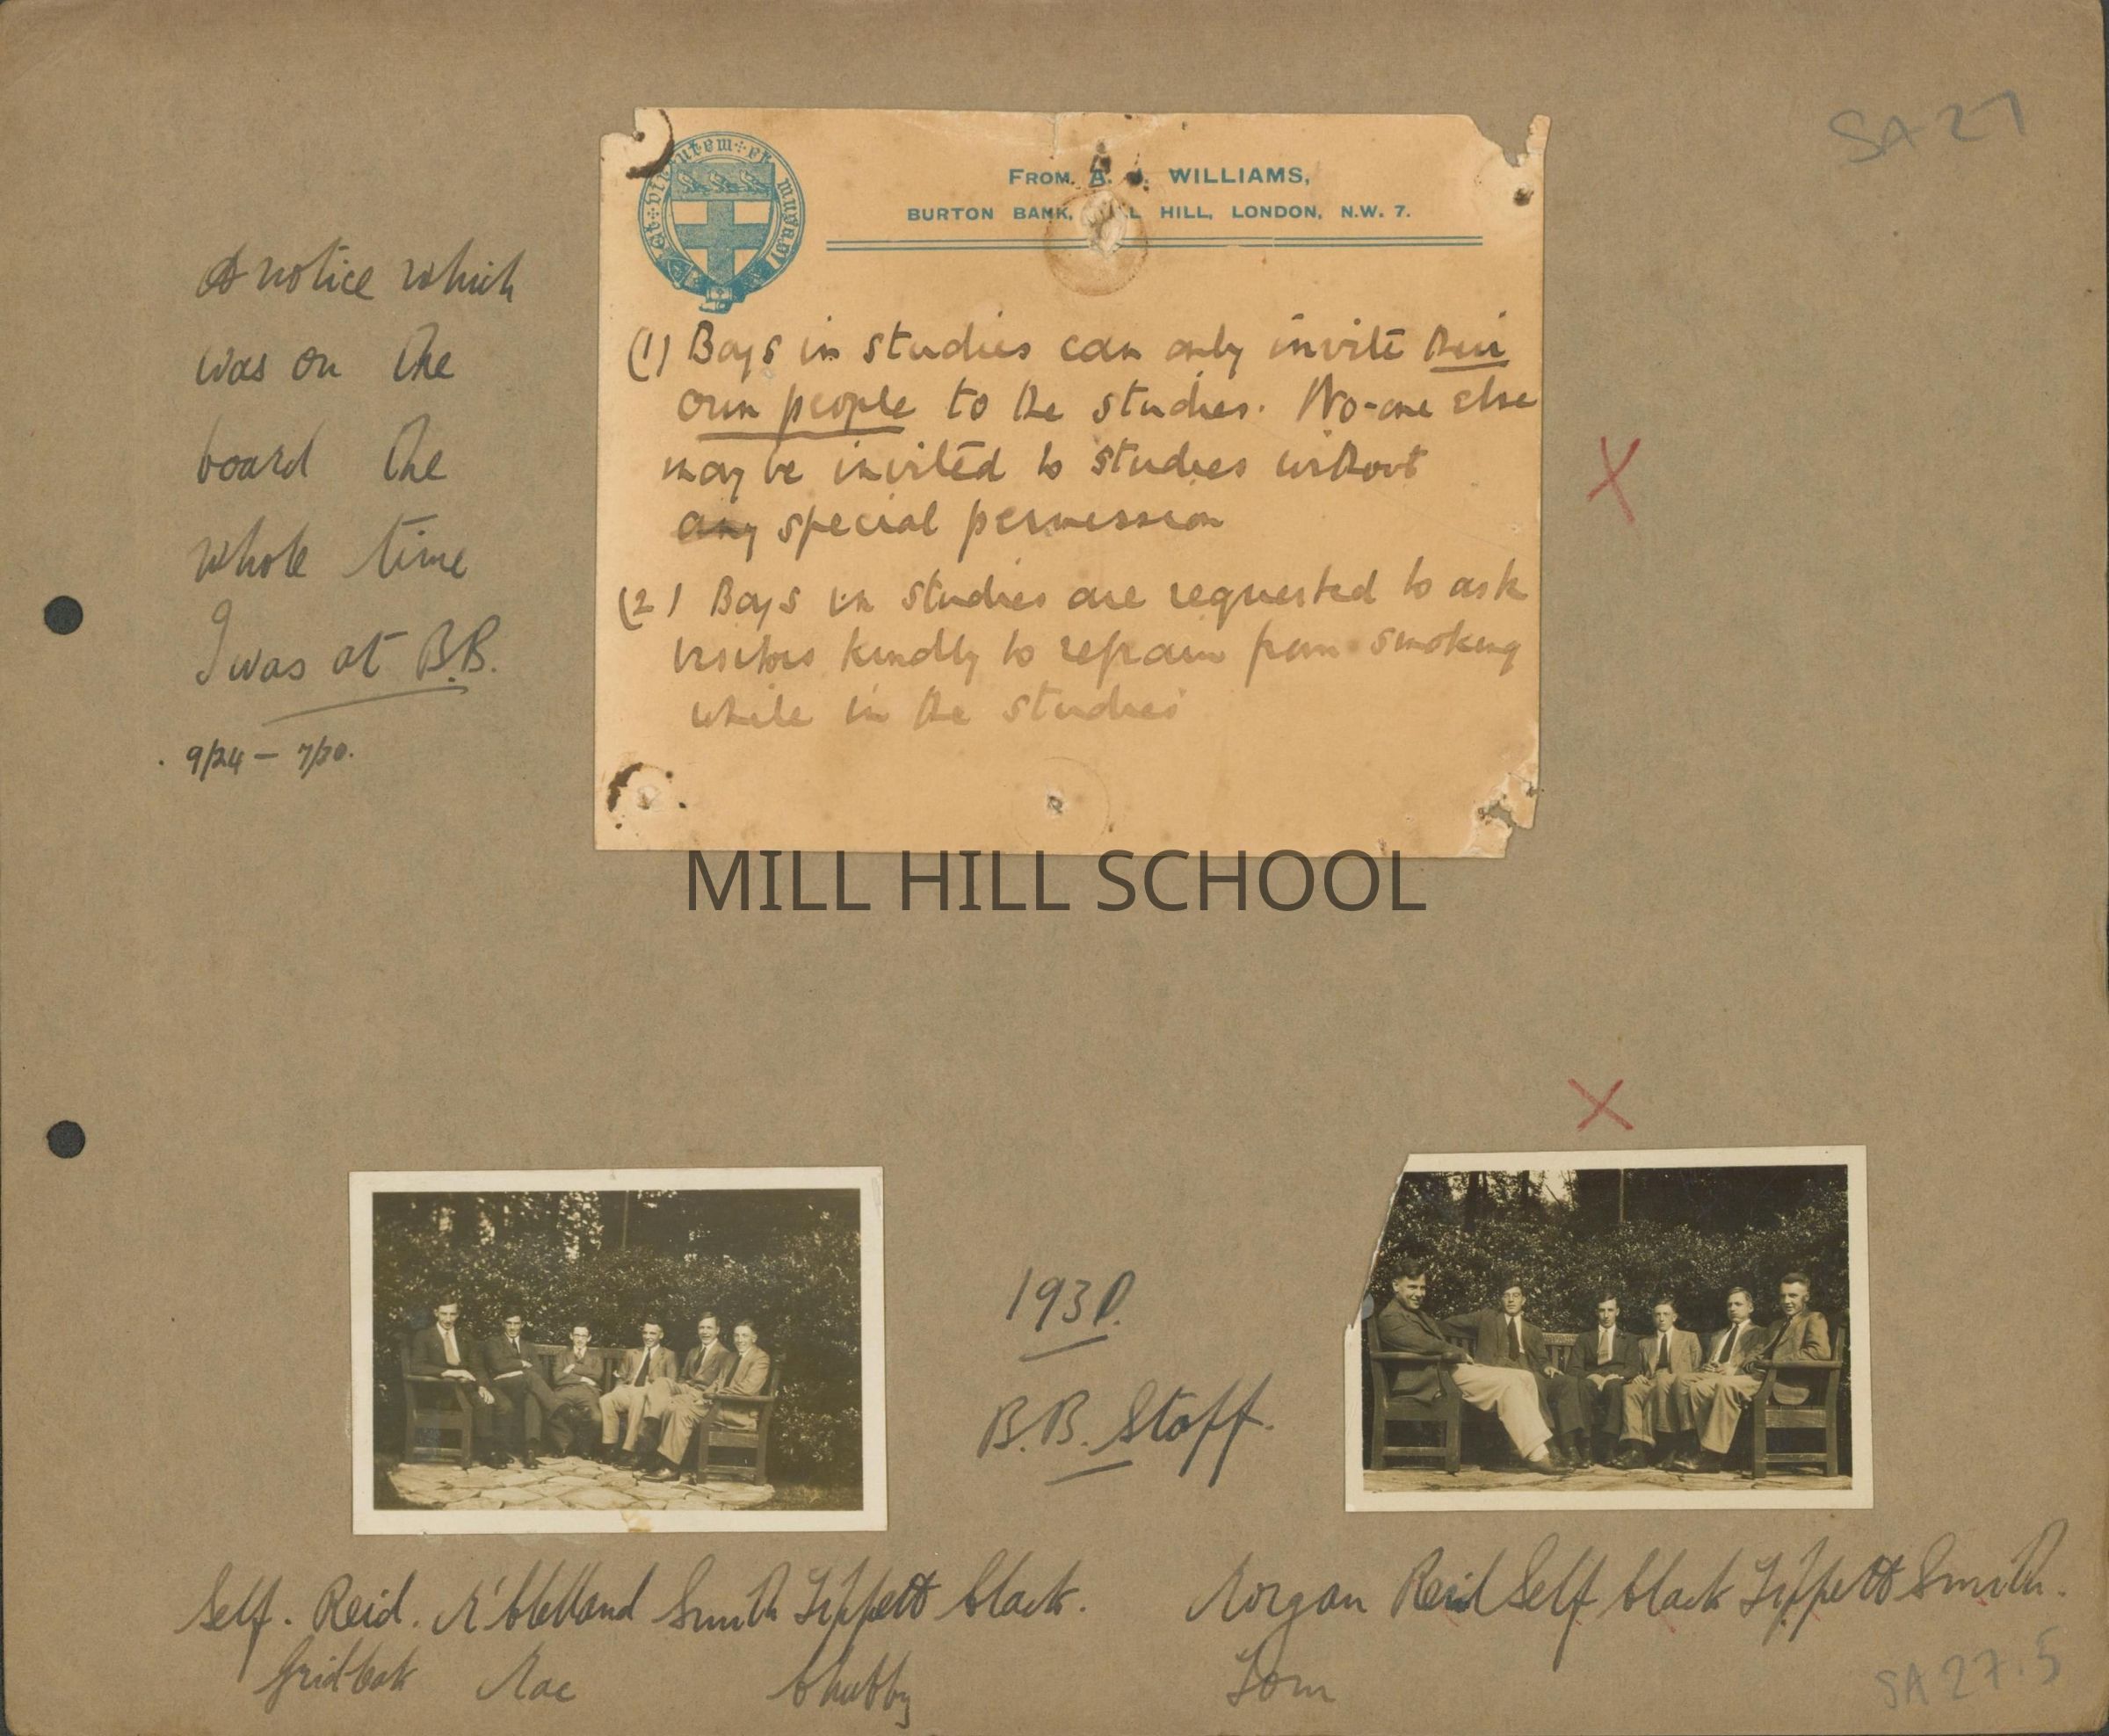 SA 27
A notice which
was on the
board the
whole time
I was at B.B.
9/24 – 7/30.
Et virtutem et musas
FROM A. WILLIAMS,
BURTON BANK, HILL, LONDON, N.W. 7.
(1) Boys in studies can only invite their
own people to the studies. No-one else
may be invited to studies without
any special permission
(2) Boys in studies are requested to ask
visitors kindly to refrain from smoking
while in the studies
MILL HILL SCHOOL
1930.
B.B. Staff.
Self. Reid. Smith Tippett Clark.
Mac Chubby
Morgan Reid Self Clark Tippett Smith.
Tom
SA 27.5